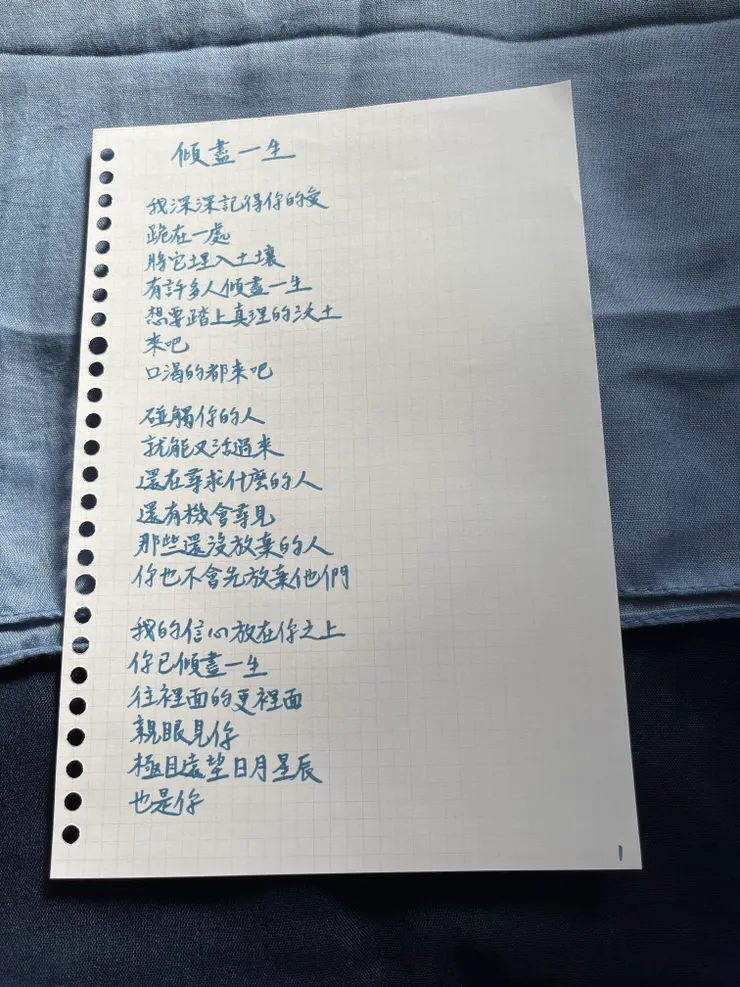 傾盡一生
我深深記得你的愛
跪在一處
將它埋入土壤
有許多人傾盡一生
想要踏上真理的沃土
來吧
口渴的都來吧
碰觸你的人
就能又活過來
還在尋求什麼的人
還有機會尋見
那些還沒放棄的人
你也不會先放棄他們
我的信心放在你之上
你已傾盡一生
往裡面的更裡面
親眼見你
極目遠望日月星辰
也是你
1